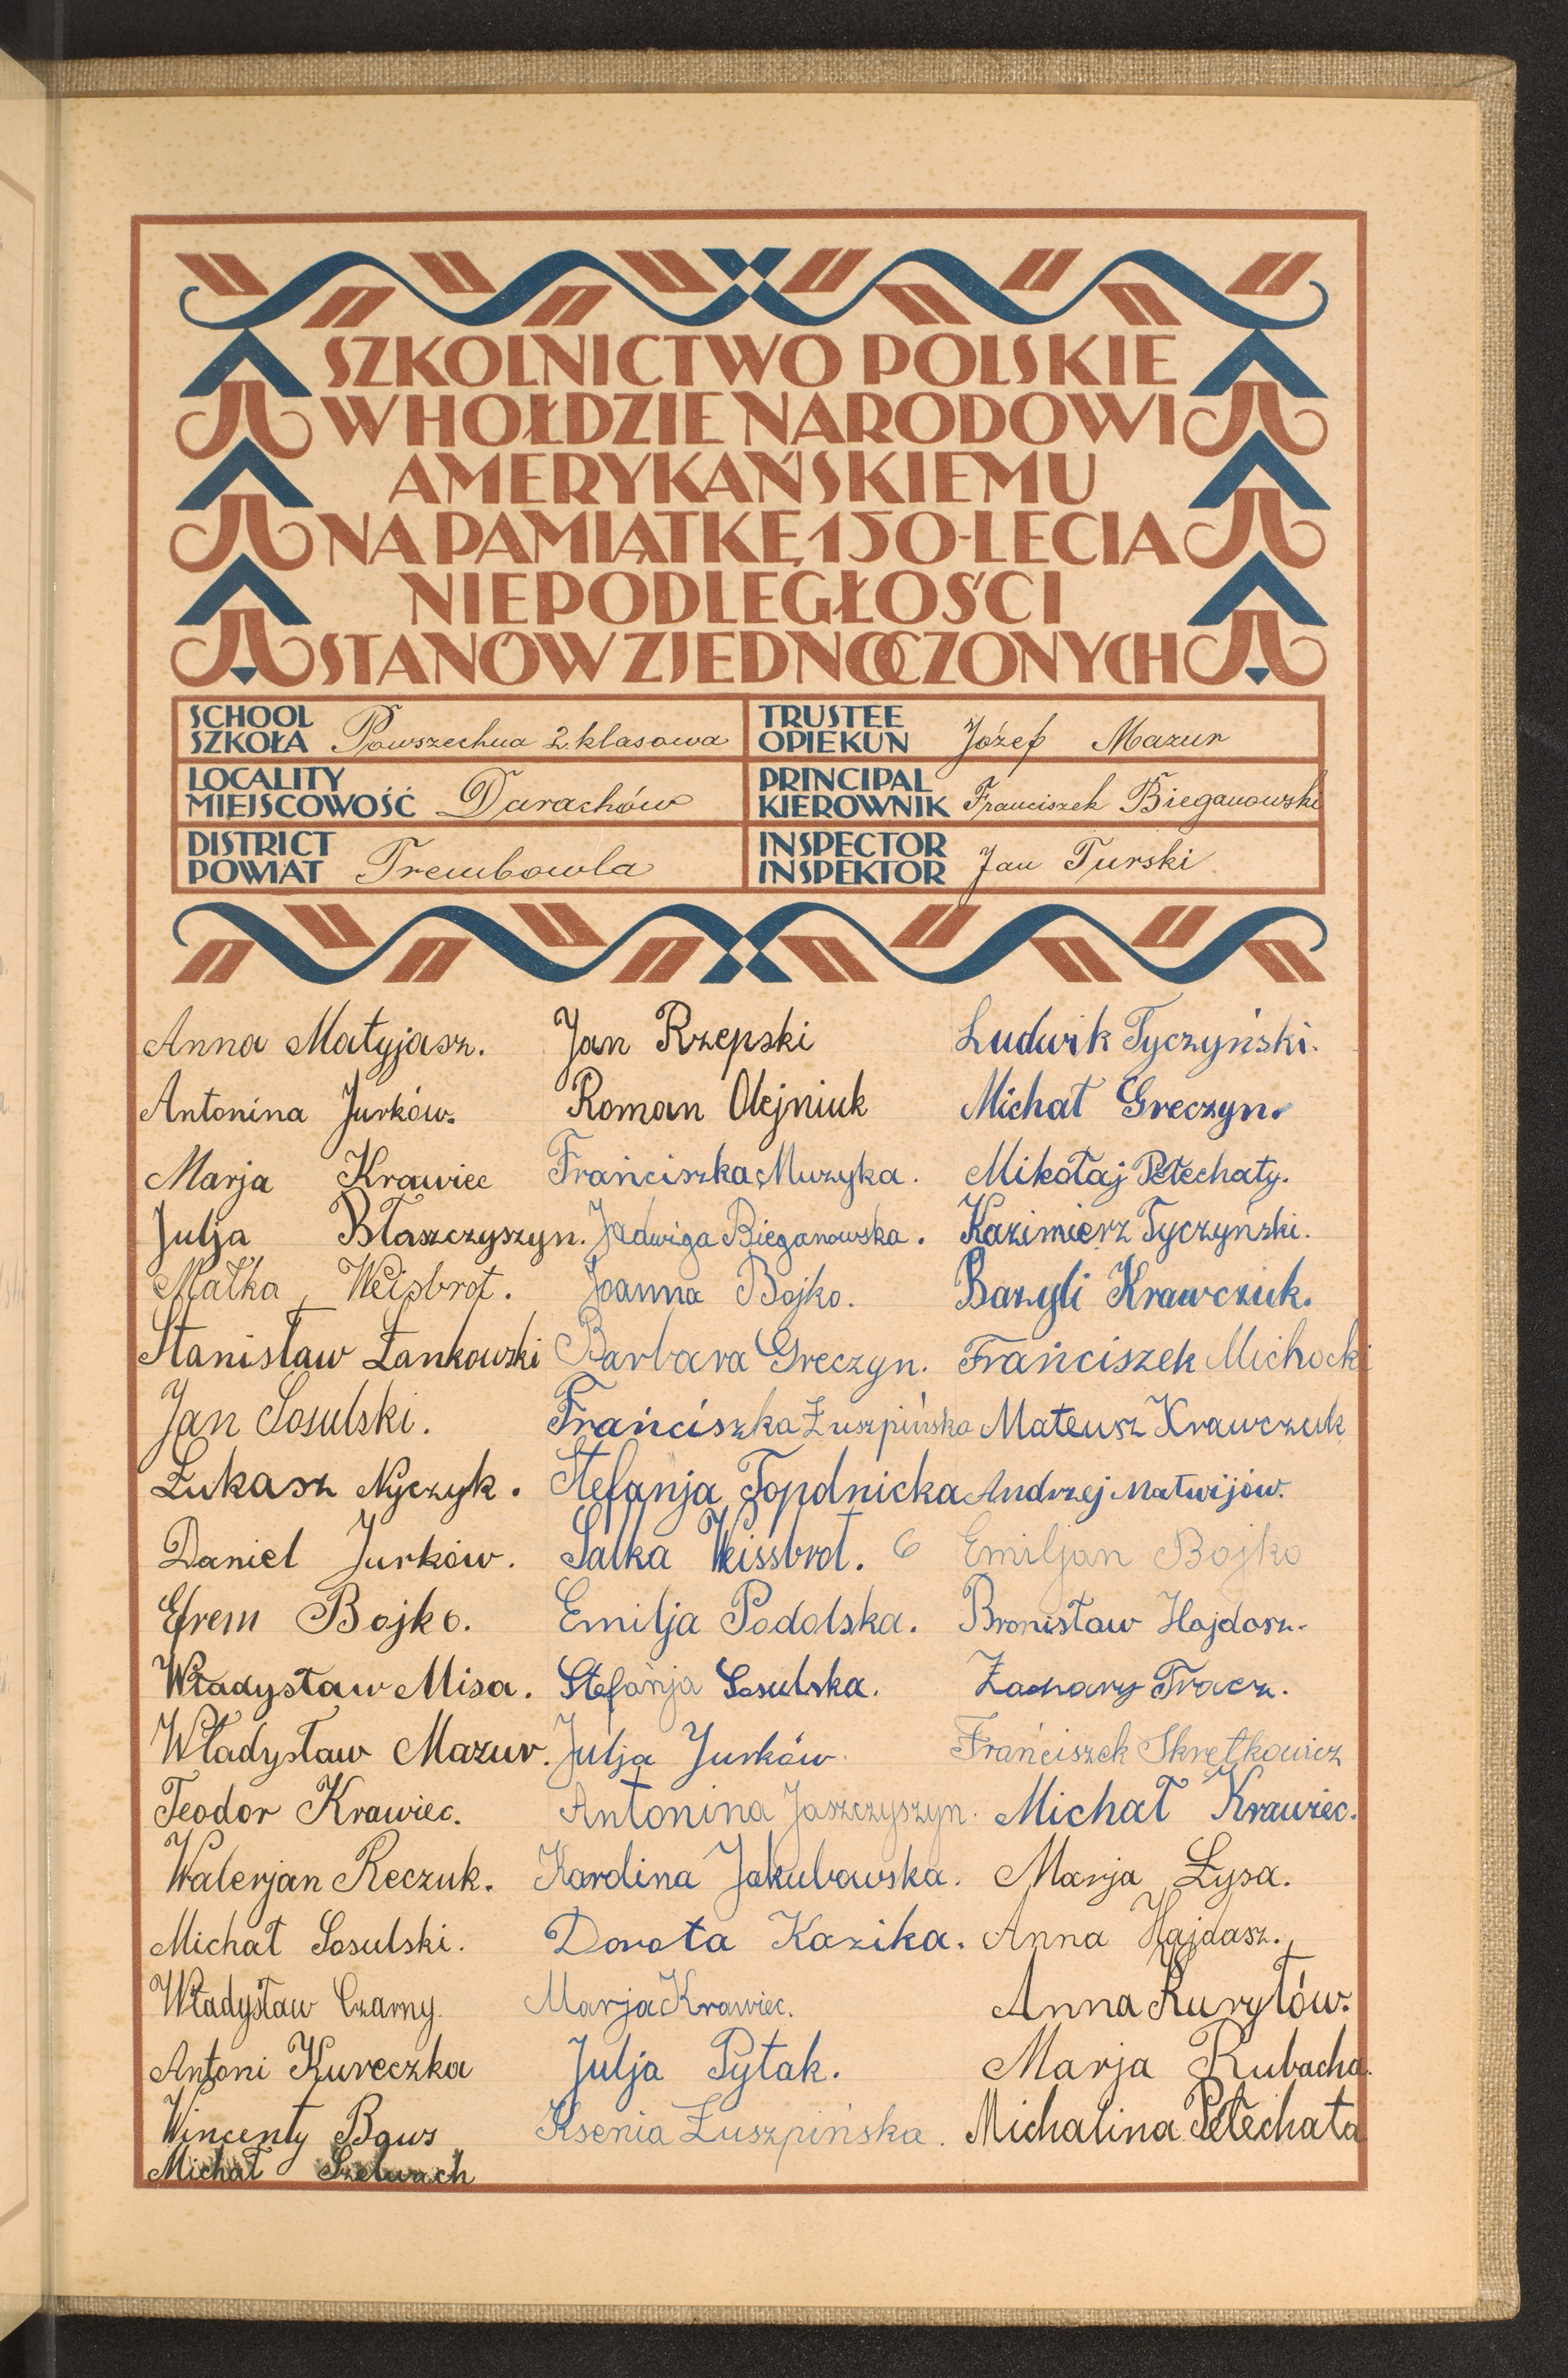 SZKOLNICTWO POLSKIE
W HOŁDZIE NARODOWI
AMERYKAŃSKIEMU
NA PAMIĄTKĘ 150-LECIA
NIEPODLEGŁOŚCI
STANÓW ZJEDNOCZONYCH
SCHOOL
SZKOŁA Powszechna 2 klasowa
TRUSTEE
OPIEKUN Józef Mazur
LOCALITY
MIEJSCOWOŚĆ Darachów
PRINCIPAL
KIEROWNIK Franciszek Bieganowski
DISTRICT
POWIAT Trembowla
INSPECTOR
INSPEKTOR Jan Turski
Anna Matyjasz.
Antonina Jurków.
Marja Krawiec
Julja Błaszczyszyn.
Małka Weisbrot.
Stanisław Łankowski
Jan Sosulski.
Łukasz Nyczyk.
Daniel Jurków.
Efrem Bojko.
Władysław Misa.
Władysław Mazur.
Teodor Krawiec.
Walerjan Reczuk.
Michał Sosulski.
Władysław Czarny.
Antoni Kureczka
Wincenty Baws
Michał
Jan Rzepski
Roman Olejniuk
Frańciszka Muzyka.
Jadwiga Bieganowska.
Joanna Bojko.
Barbara Greczyn.
Frańciszka Łuszpińska
Stefanja Topolnicka
Salka Weissbrot. 6
Emilja Podolska.
Stefanja Sosulska.
Julja Jurków.
Antonina Jaszczyszyn.
Karolina Jakubowska.
Dorota Kazika.
Marja Krawiec.
Julja Pytak.
Ksenia Łuszpińska.
Ludwik Tyczyński.
Michał Greczyn.
Mikołaj Petechaty.
Kazimierz Tyczyński.
Bazyli Krawczuk.
Frańciszek Michocki
Mateusz Krawczuk
Andrzej Matwijów.
Emiljan Bojko
Bronisław Hajdasz.
Zachary Tracz.
Frańciszek Skrętkowicz
Michał Krawiec.
Marja Łysa.
Anna Hajdasz.
Anna Kuryłów.
Marja Rubacha.
Michalina Petechata